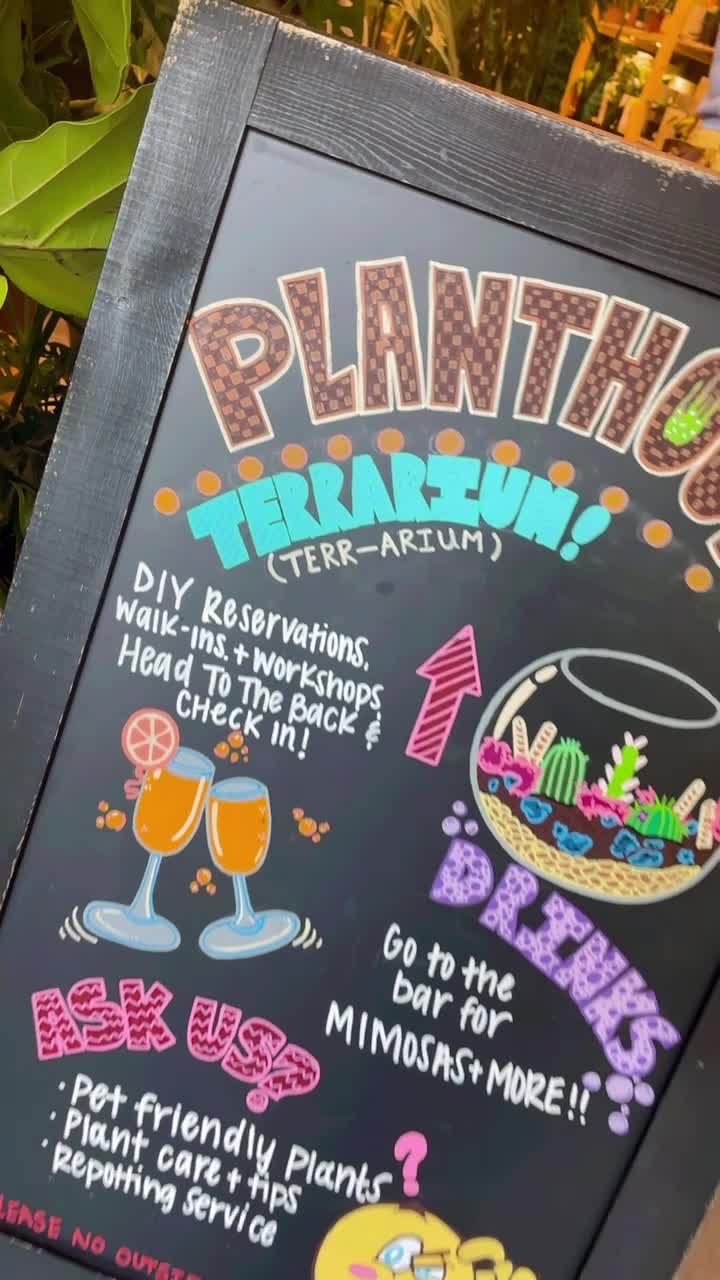 PLANTHOU
TERRARIUM!
(TERR-ARIUM)
DIY Reservations,
Walk-ins, + workshops
Head To The Back &
CHeCK in!
DRINKS
Go to the
bar for
MIMOSAS+MORE!!
ASK US?
· Pet friendly plants
· Plant care + tips
· Repotting service
?
LEASE NO OUTSI